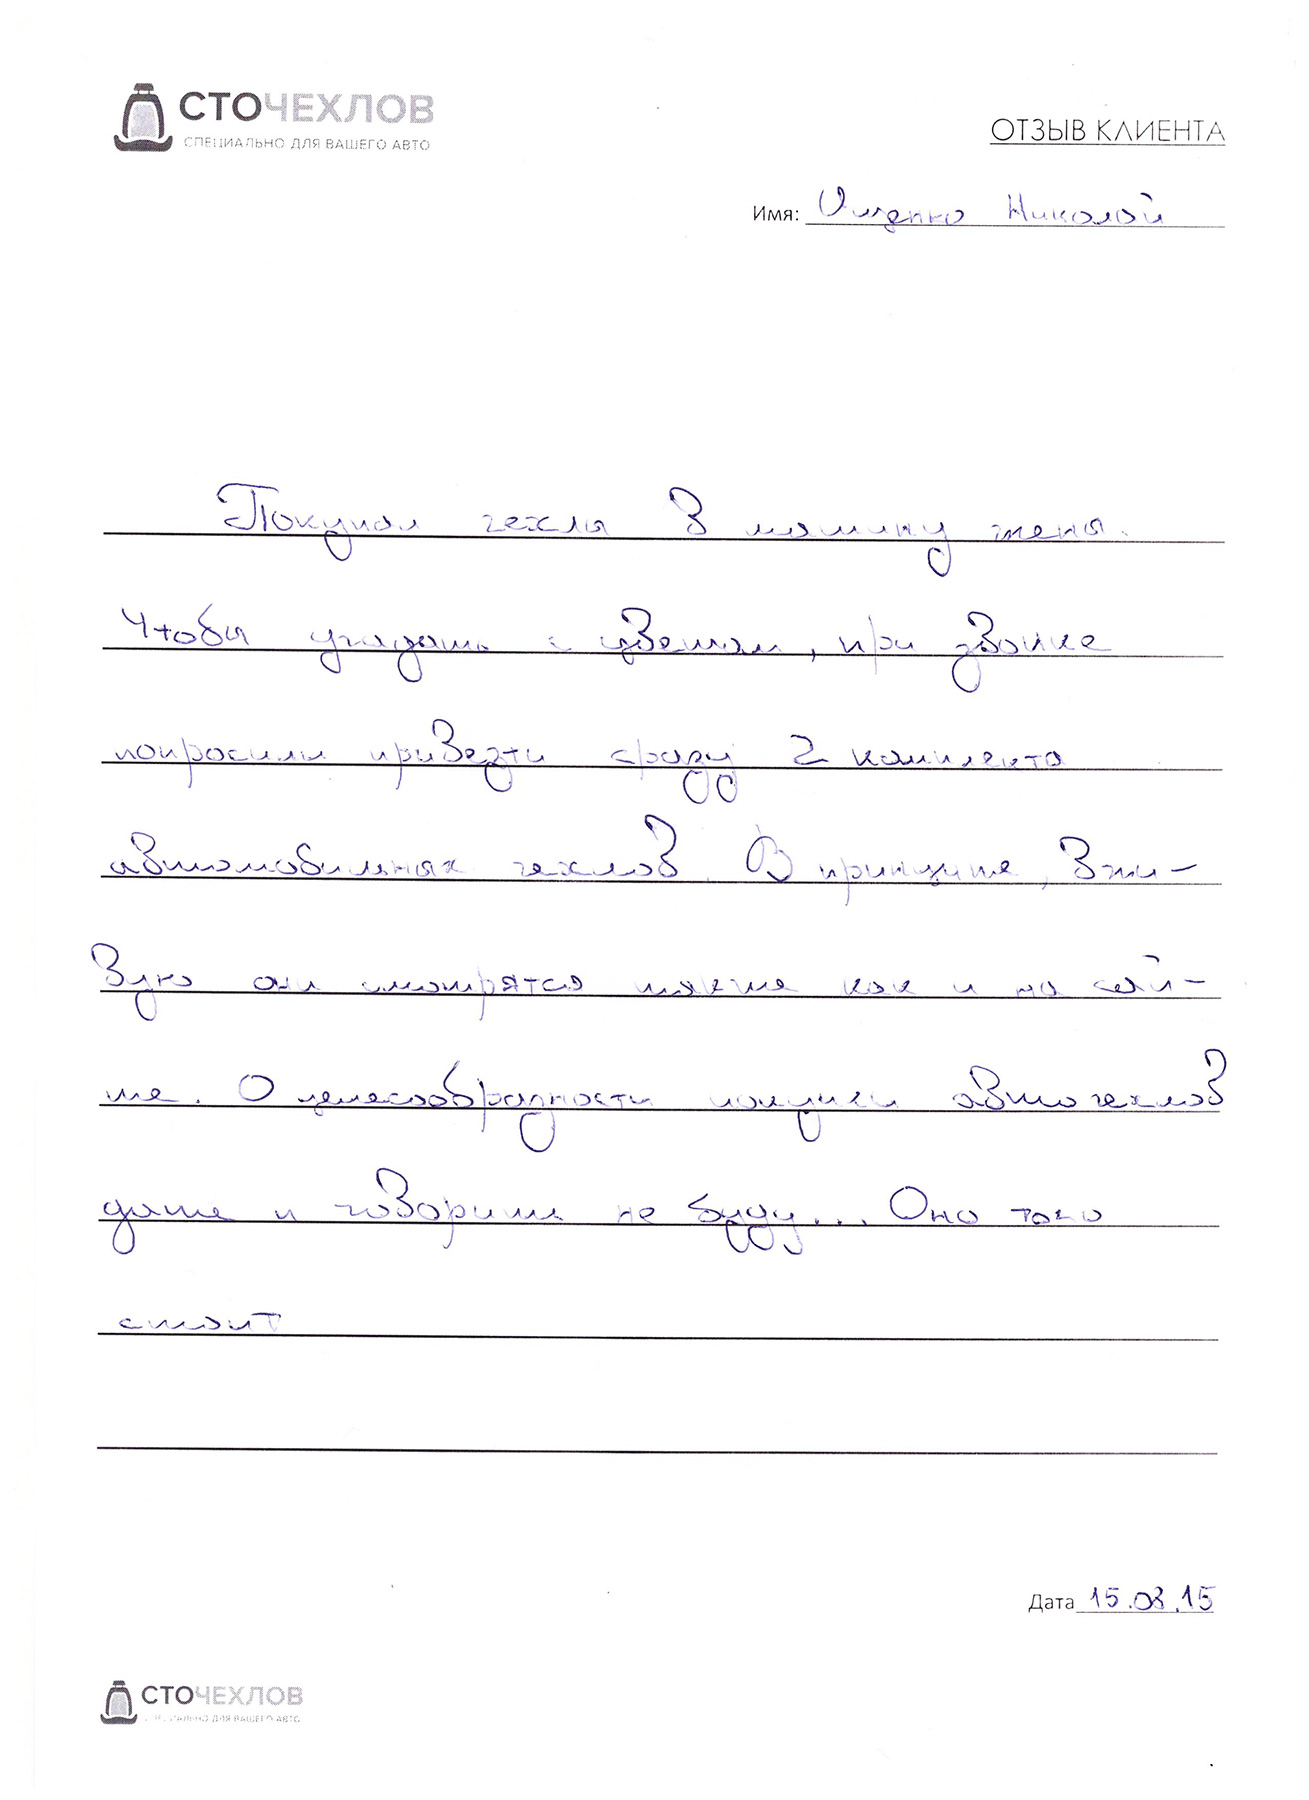 СТОЧЕХЛОВ
СПЕЦИАЛЬНО ДЛЯ ВАШЕГО АВТО
ОТЗЫВ КЛИЕНТА
Имя: Ищенко Николай
Покупал чехлы в машину жены.
Чтобы угадать с цветом, при звонке
попросили привезти сразу 2 комплекта
автомобильных чехлов. В принципе, вжи-
вую они смотрятся также как и на сай-
те. О целесообразности покупки авточехлов
даже и говорить не буду... Оно того
стоит
Дата 15.08.15
СТОЧЕХЛОВ
СПЕЦИАЛЬНО ДЛЯ ВАШЕГО АВТО